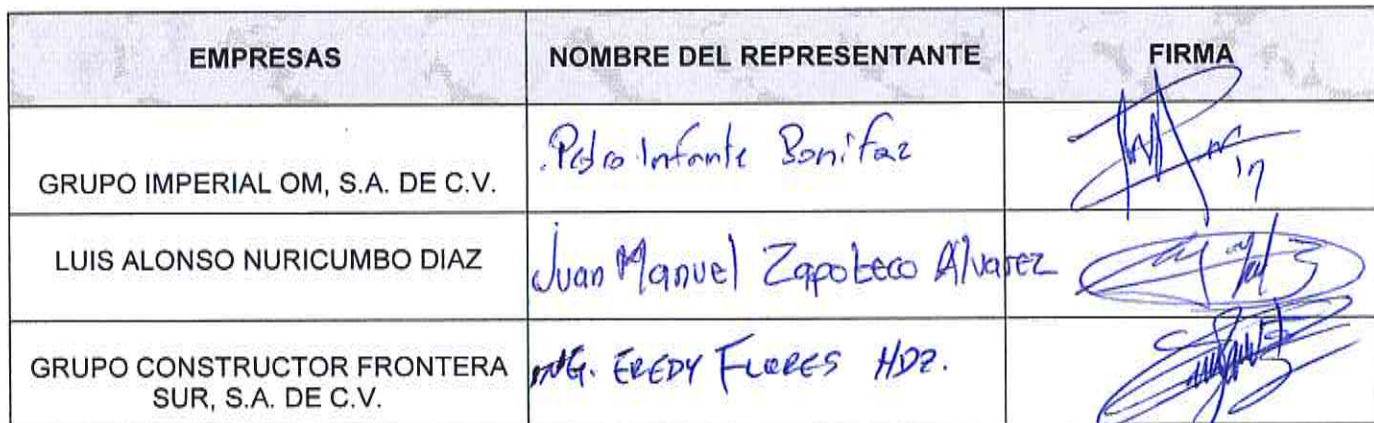 EMPRESAS NOMBRE DEL REPRESENTANTE FIRMA
GRUPO IMPERIAL OM, S.A. DE C.V. Pedro Infante Bonifaz
LUIS ALONSO NURICUMBO DIAZ Juan Manuel Zapoteco Alvarez
GRUPO CONSTRUCTOR FRONTERA SUR, S.A. DE C.V. ING. EREDY FLORES HDZ.